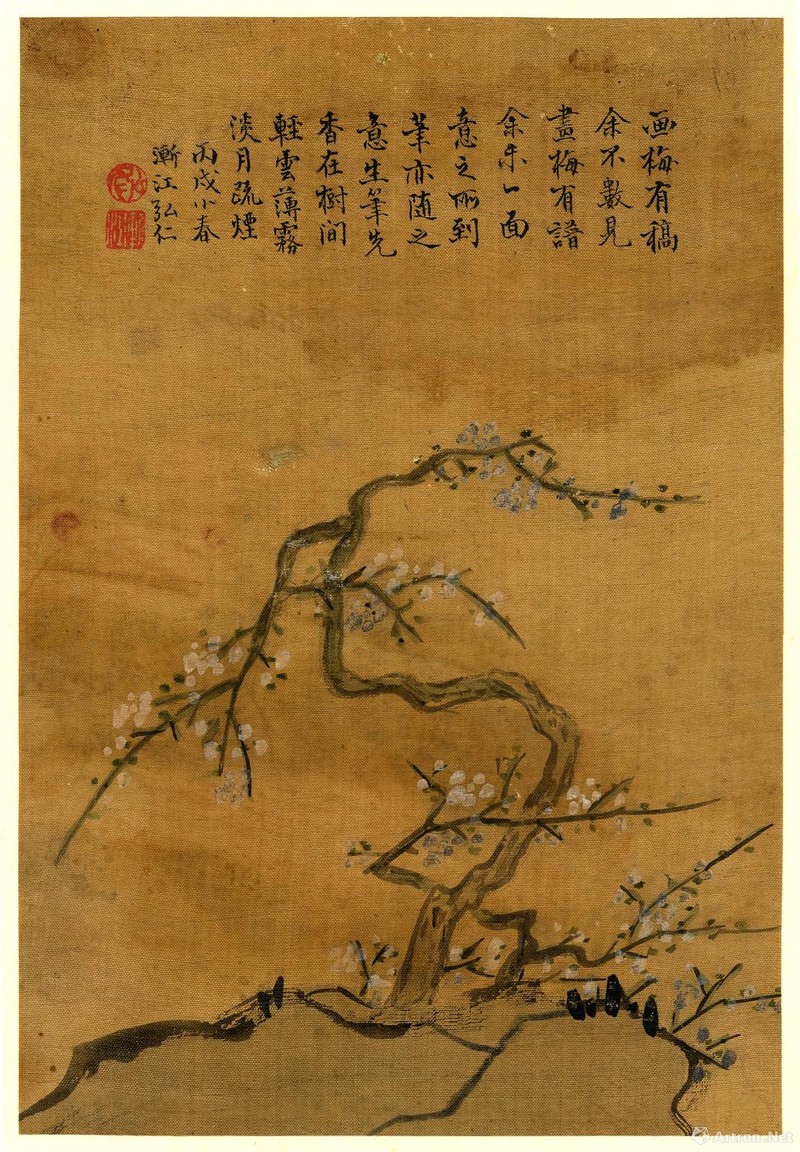 画梅有稿
余不數見
畫梅有譜
余未一面
意之所到
筆亦随之
意生筆先
香在樹间
輕雲薄霧
淡月疏煙
丙戌小春
漸江弘仁
Artron.Net